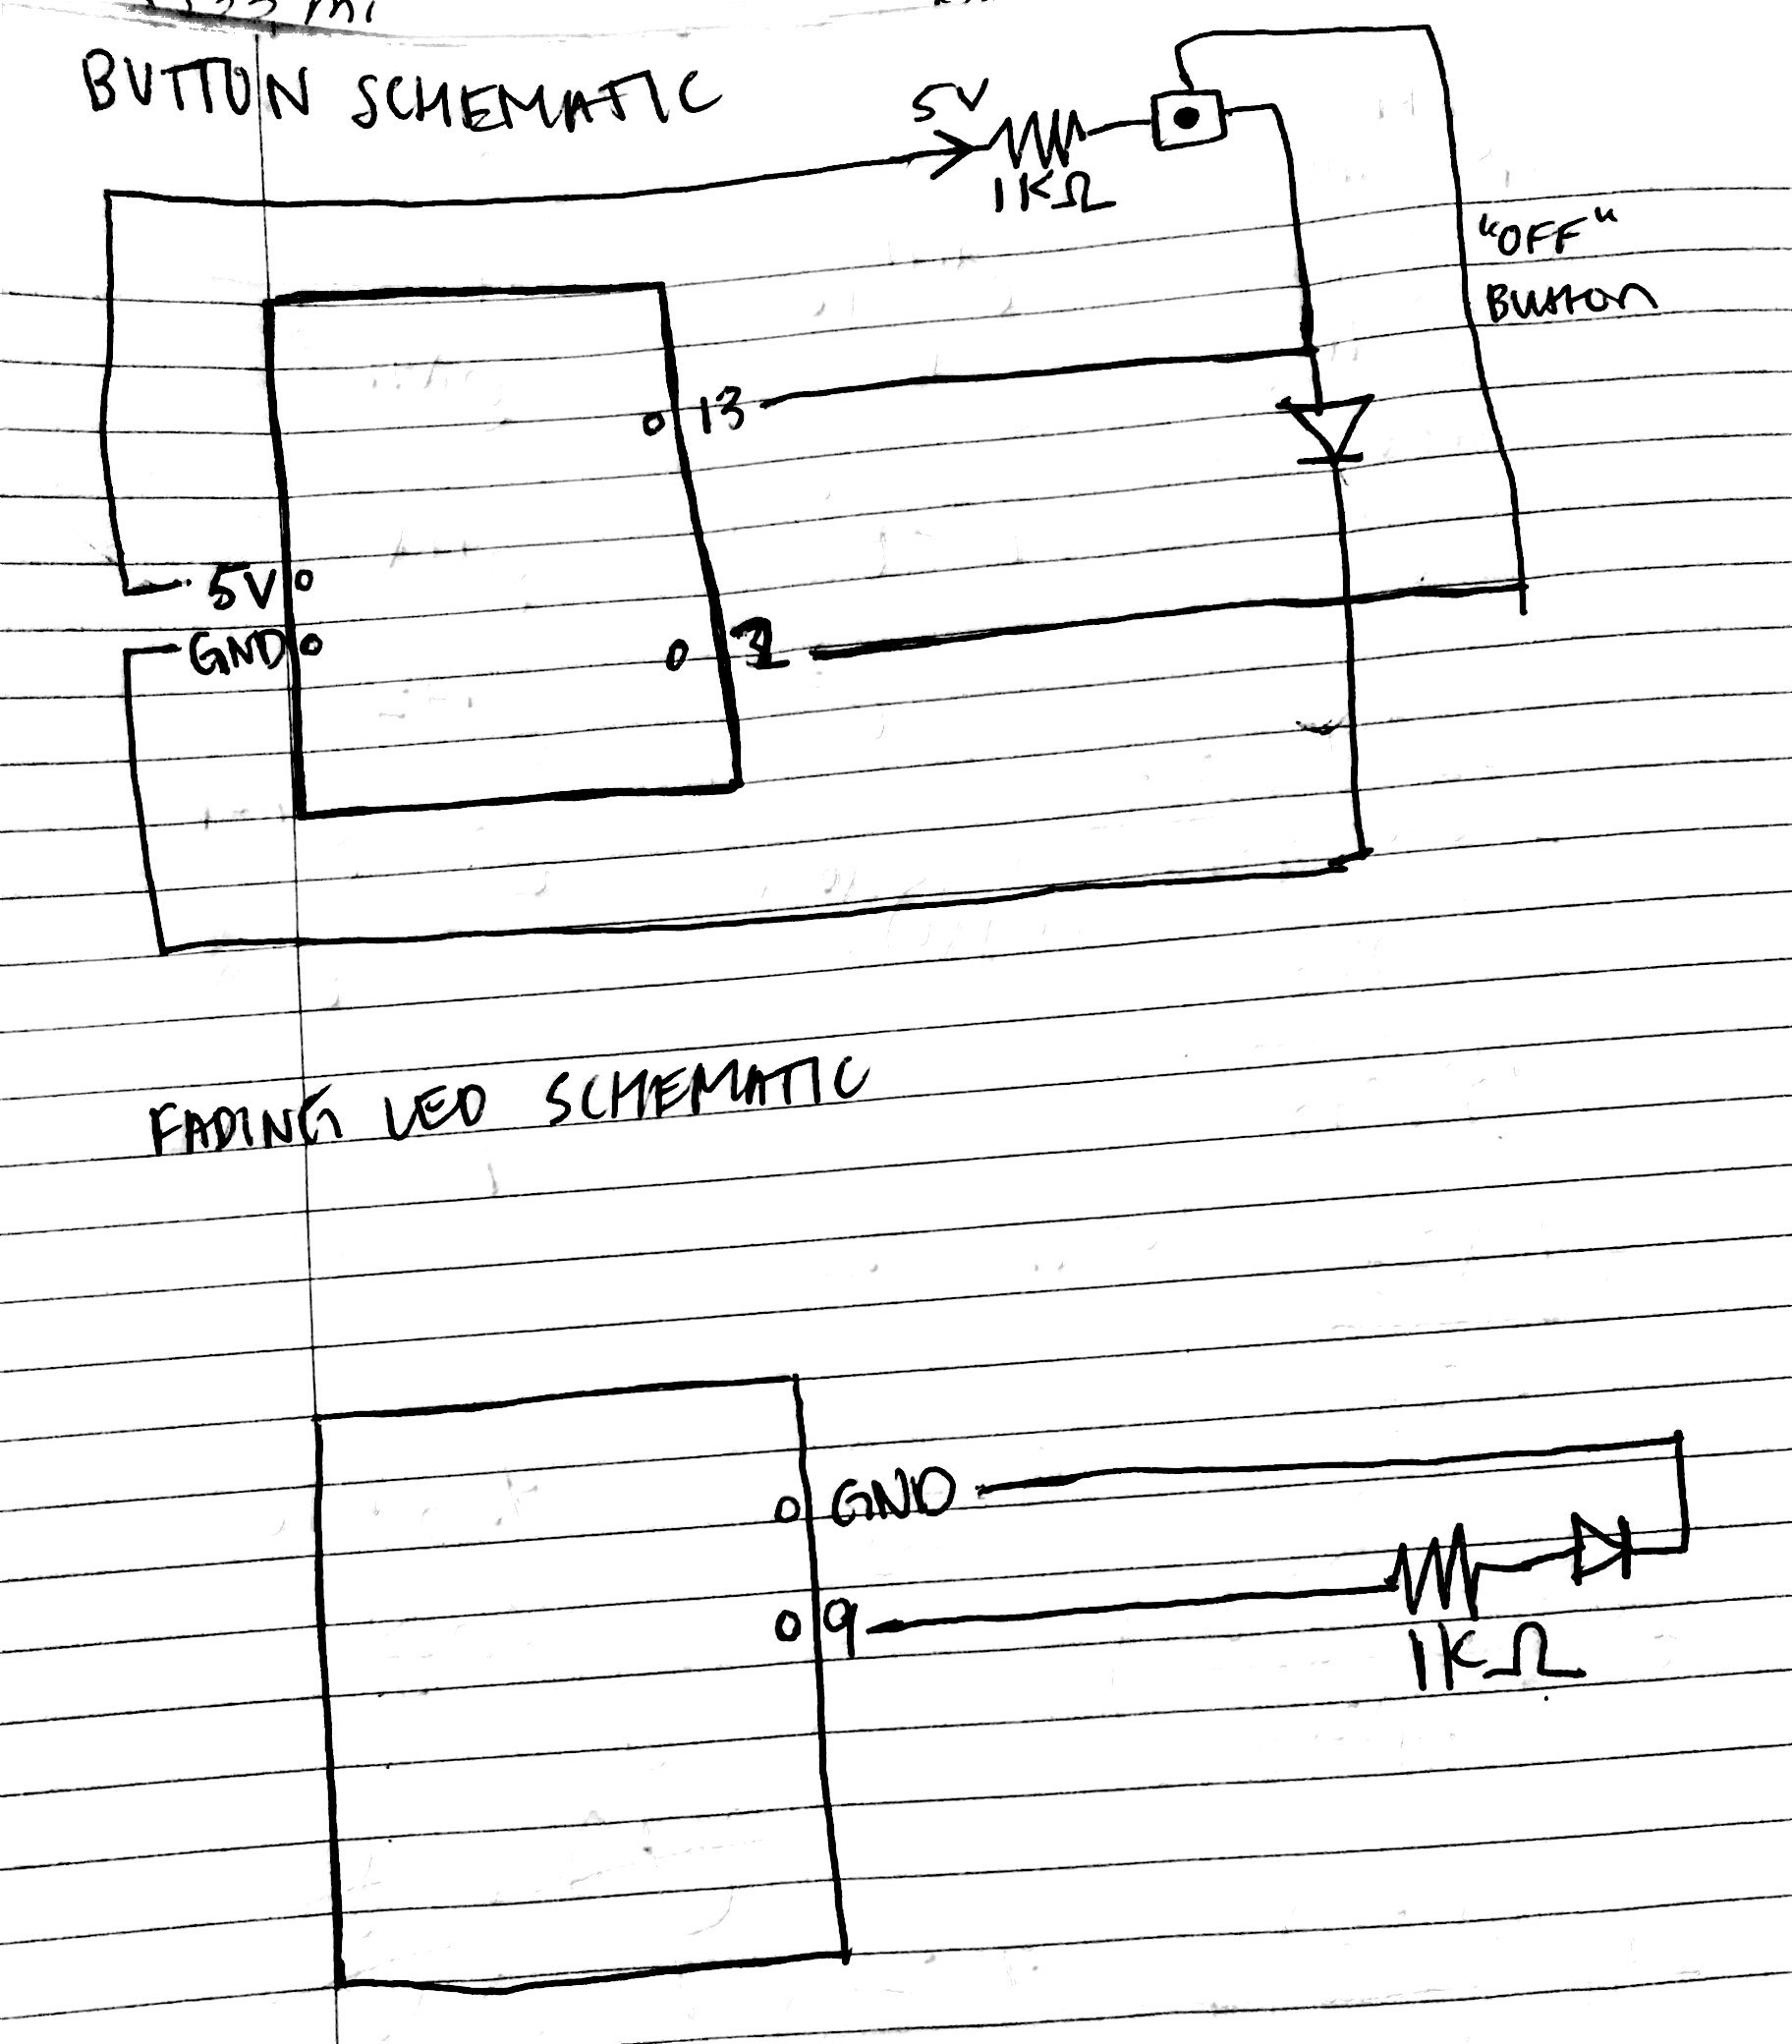 BUTTON SCHEMATIC
5V
1KΩ
"OFF"
BUTTON
13
5V
GND
2
FADING LED SCHEMATIC
GND
9
1KΩ